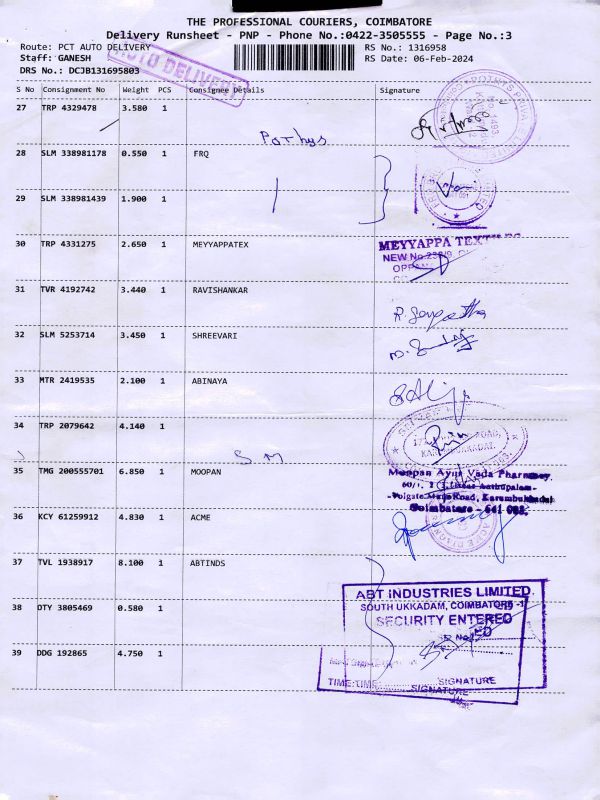 THE PROFESSIONAL COURIERS, COIMBATORE
Delivery Runsheet - PNP - Phone No.:0422-3505555 - Page No.:3
Route: PCT AUTO DELIVERY RS No.: 1316958
Staff: GANESH RS Date: 06-Feb-2024
DRS No.: DCJB131695803
AUTO DELIVERY
S No Consignment No Weight PCS Consignee Details Signature
27 TRP 4329478 3.580 1
Pothys
28 SLM 338981178 0.550 1 FRQ
29 SLM 338981439 1.900 1
30 TRP 4331275 2.650 1 MEYYAPPATEX
MEYYAPPA TEXT
NEW No.
31 TVR 4192742 3.440 1 RAVISHANKAR
32 SLM 5253714 3.450 1 SHREEVARI
33 MTR 2419535 2.100 1 ABINAYA
34 TRP 2079642 4.140 1
SM
35 TMG 200555701 6.850 1 MOOPAN
Moopan Ayur Veda Pharmacy,
Coimbatore - 641 008,
36 KCY 61259912 4.830 1 ACME
37 TVL 1938917 8.100 1 ABTINDS
ABT INDUSTRIES LIMITED
SOUTH UKKADAM, COIMBATORE -1
SECURITY ENTERED
38 DTY 3805469 0.580 1
39 DDG 192865 4.750 1
SIGNATURE
TIME: SIGNATURE